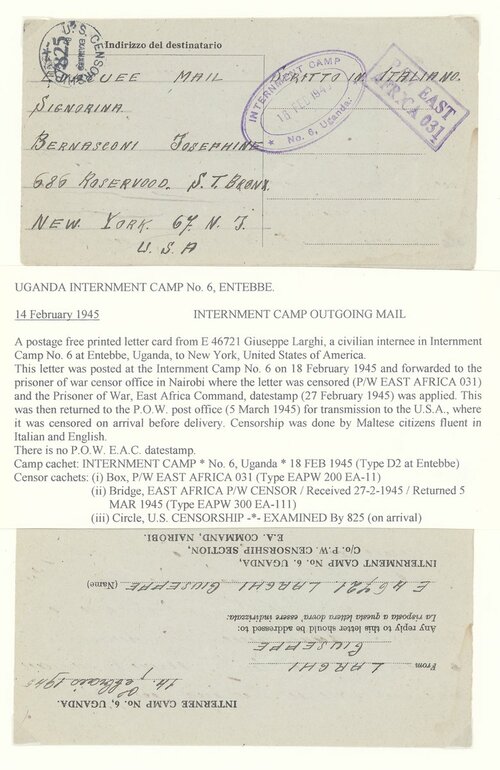 U.S. CENSORSHIP
EXAMINED By
825
Indirizzo del destinatario
MAIL SCRITTO IN ITALIANO.
INTERNMENT CAMP
18 FEB 1945
* No. 6, Uganda. *
EAST
AFRICA 031
SIGNORINA
BERNASCONI JOSEPHINE
686 ROSERVOOD. S.T. BRONX
NEW YORK. 67. N. J.
U.S.A
UGANDA INTERNMENT CAMP No. 6, ENTEBBE.
14 February 1945 INTERNMENT CAMP OUTGOING MAIL
A postage free printed letter card from E 46721 Giuseppe Larghi, a civilian internee in Internment
Camp No. 6 at Entebbe, Uganda, to New York, United States of America.
This letter was posted at the Internment Camp No. 6 on 18 February 1945 and forwarded to the
prisoner of war censor office in Nairobi where the letter was censored (P/W EAST AFRICA 031)
and the Prisoner of War, East Africa Command, datestamp (27 February 1945) was applied. This
was then returned to the P.O.W. post office (5 March 1945) for transmission to the U.S.A., where
it was censored on arrival before delivery. Censorship was done by Maltese citizens fluent in
Italian and English.
There is no P.O.W. E.A.C. datestamp.
Camp cachet: INTERNMENT CAMP * No. 6, Uganda * 18 FEB 1945 (Type D2 at Entebbe)
Censor cachets: (i) Box, P/W EAST AFRICA 031 (Type EAPW 200 EA-11)
(ii) Bridge, EAST AFRICA P/W CENSOR / Received 27-2-1945 / Returned 5
MAR 1945 (Type EAPW 300 EA-111)
(iii) Circle, U.S. CENSORSHIP -*- EXAMINED By 825 (on arrival)
INTERNEE CAMP No. 6, UGANDA.
14. febbraio 1945
From LARGHI
GIUSEPPE
Any reply to this letter should be addressed to:
La risposta a questa lettera dovra' essere indirizzata:
E 46721 LARGHI GIUSEPPE (Name)
INTERNMENT CAMP No. 6 UGANDA,
C/o P.W. CENSORSHIP SECTION,
E.A. COMMAND, NAIROBI.